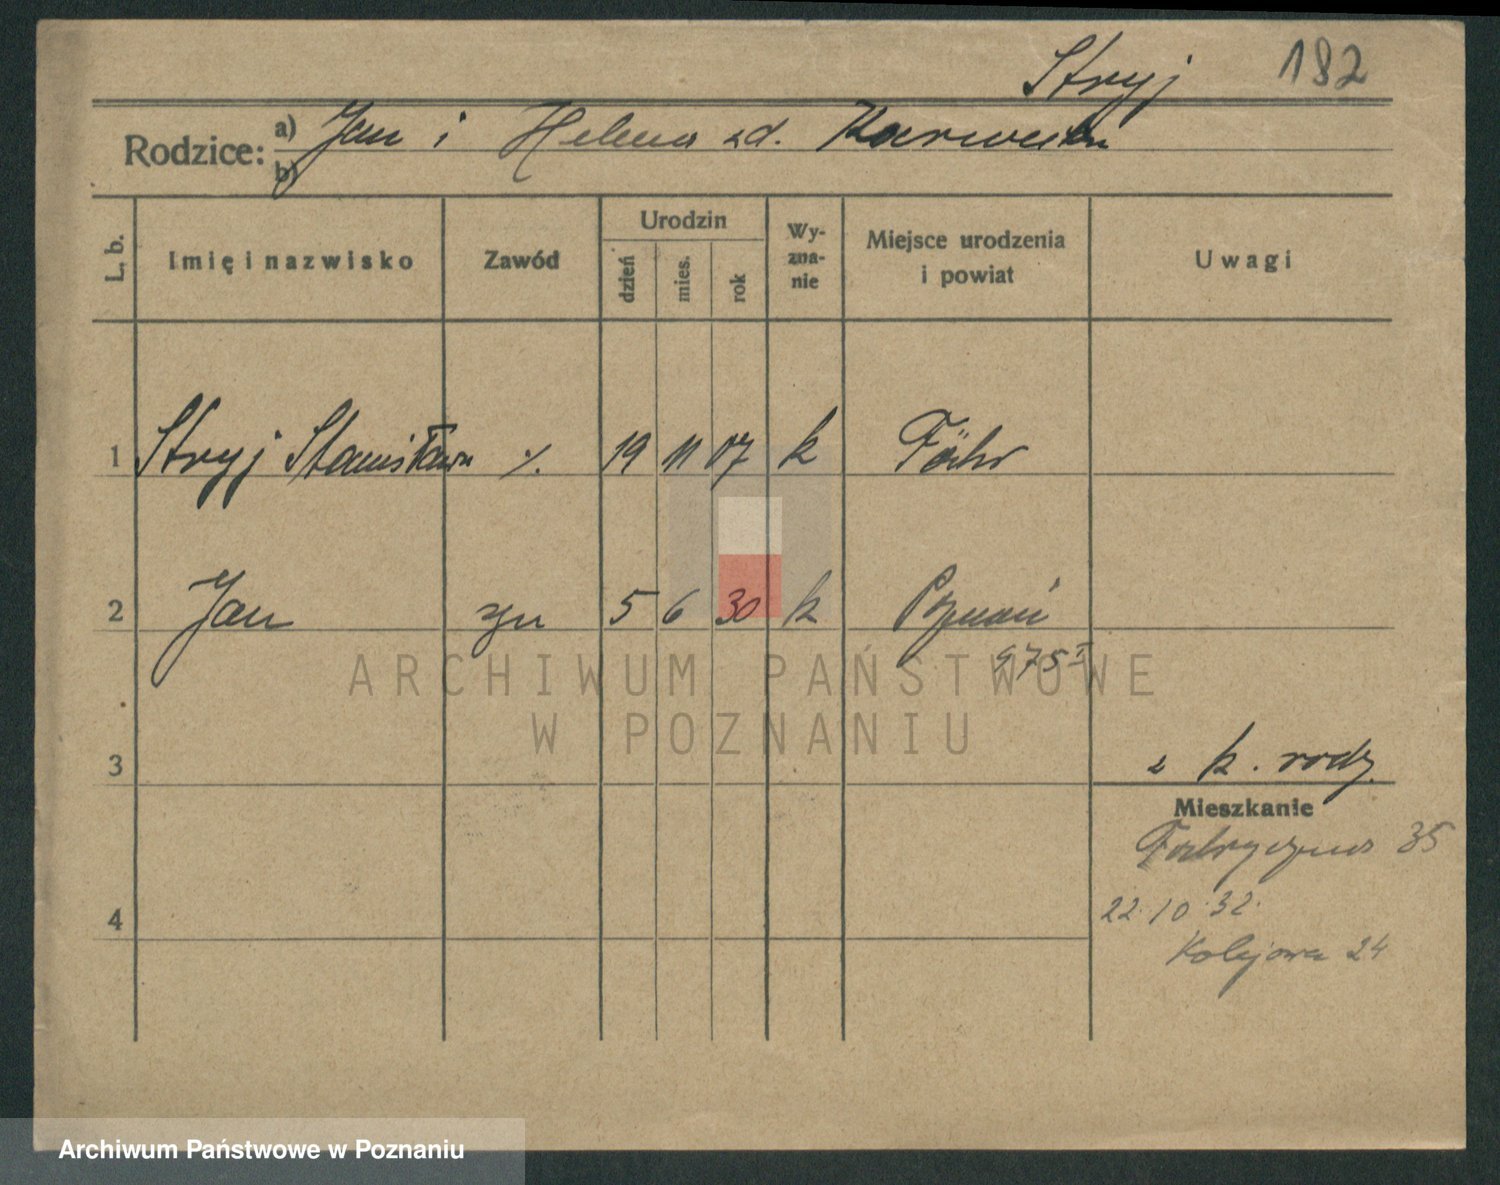 Stryj 182
Rodzice: a) Jan i Helena zd.
b)
L. b. Imię i nazwisko Zawód Urodzin dzień mies. rok Wy-zna-nie Miejsce urodzenia i powiat Uwagi
1 Stryj Stanisława ·/. 19 11 07 k Föhr
2 Jan syn 5 6 30 k Poznań
975 I
ARCHIWUM PAŃSTWOWE
W POZNANIU
3 z k. rodz.
Mieszkanie
Fabryczna 35
22.10.32.
4
Kolejowa 24
Archiwum Państwowe w Poznaniu